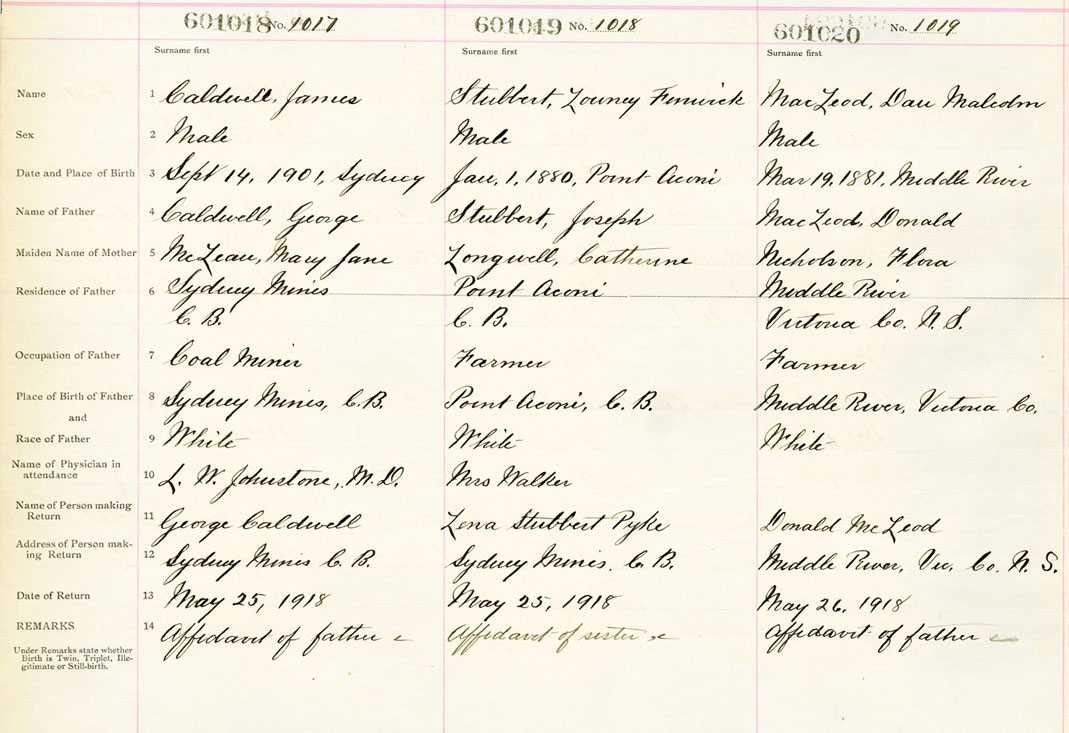 601018 No. 1017 601019 No. 1018 601020 No. 1019
Surname first Surname first Surname first
Name 1 Caldwell, James Stubbert, Louney Fenwick MacLeod, Dan Malcolm
Sex 2 Male Male Male
Date and Place of Birth 3 Sept 14, 1901, Sydney Jan, 1, 1880, Point Aconi Mar 19, 1881, Middle River
Name of Father 4 Caldwell, George Stubbert, Joseph MacLeod, Donald
Maiden Name of Mother 5 McLean, Mary Jane Longwell, Catherine Nicholson, Flora
Residence of Father 6 Sydney Mines Point Aconi Middle River
C. B. C. B. Victoria Co. N. S.
Occupation of Father 7 Coal Miner Farmer Farmer
Place of Birth of Father 8 Sydney Mines, C. B. Point Aconi, C. B. Middle River, Victoria Co.
and
Race of Father 9 White White White
Name of Physician in
attendance 10 L. W. Johnstone, M. D. Mrs Walker
Name of Person making
Return 11 George Caldwell Lena Stubbert Pyke Donald McLeod
Address of Person mak-
ing Return 12 Sydney Mines C. B. Sydney Mines, C. B. Middle River, Vic. Co. N. S.
Date of Return 13 May 25, 1918 May 25, 1918 May 26, 1918
REMARKS 14 Affidavit of father Affidavit of sister Affidavit of father
Under Remarks state whether
Birth is Twin, Triplet, Ille-
gitimate or Still-birth.